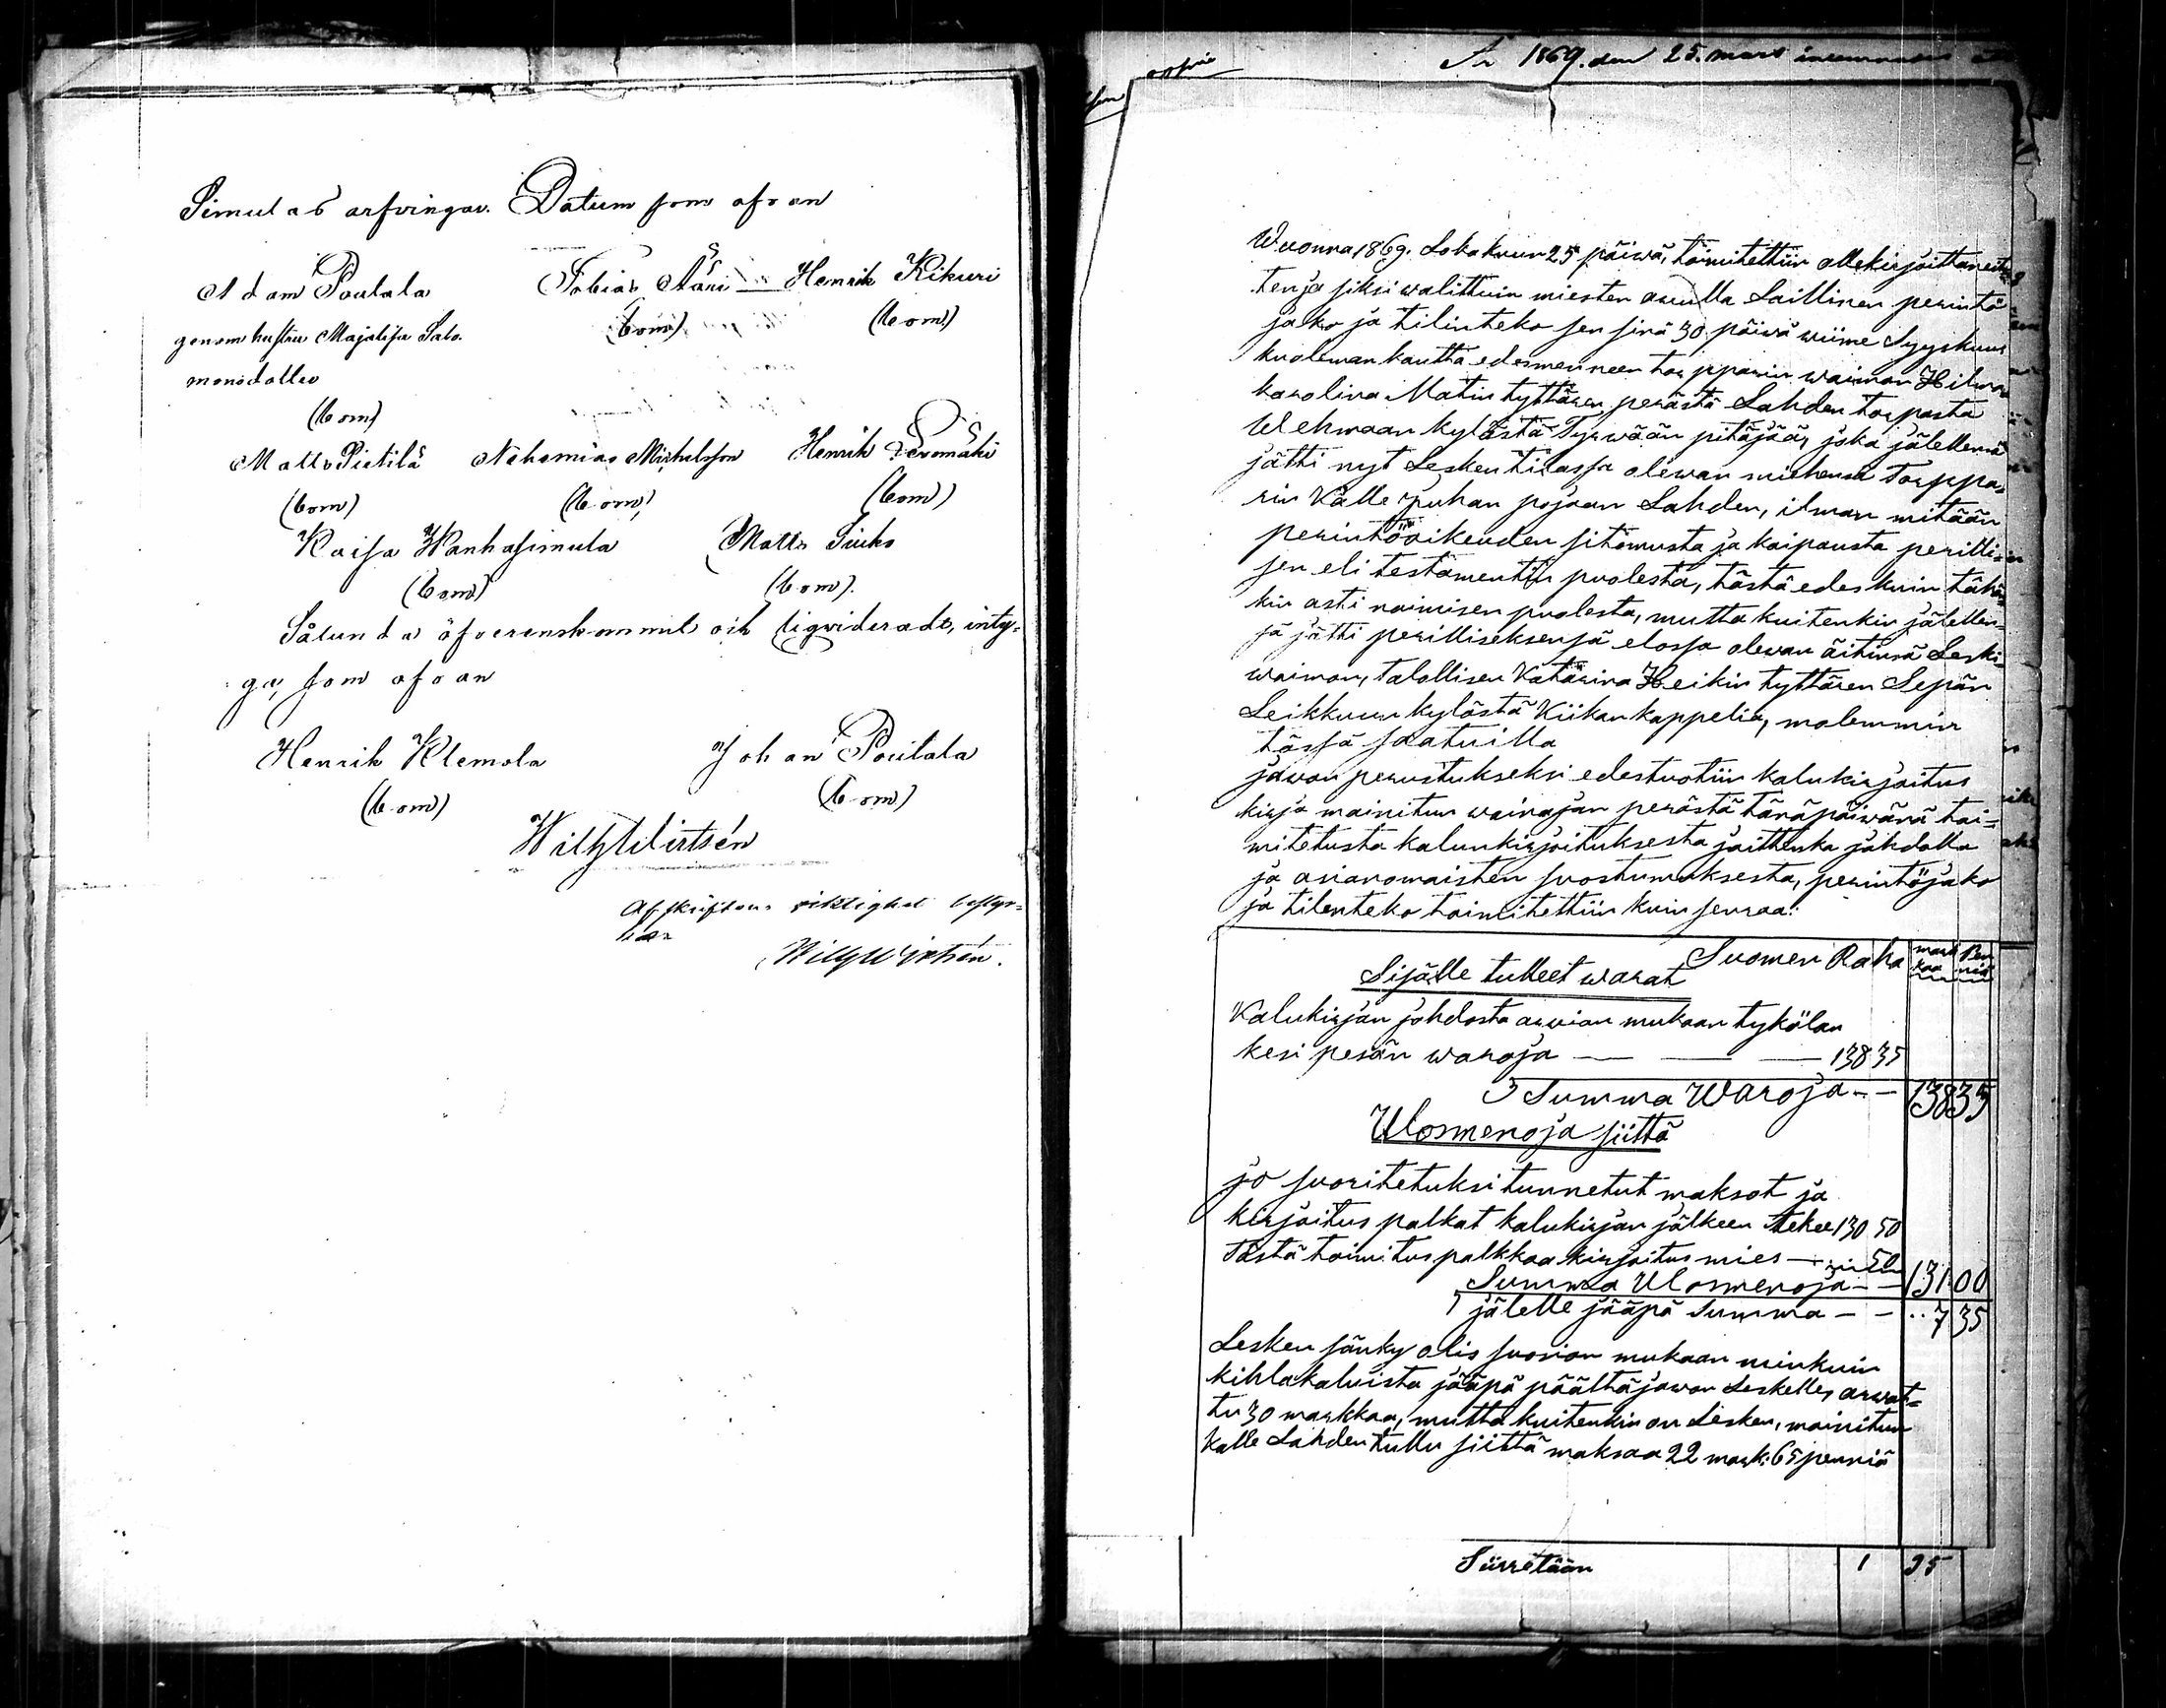 Simulas arfvingar. Datum som ofvan
Adam Poulala Tobias Härri Henrik Kikuri
genom hustru Majalisa Salo. (bom) (bom)
(bom)
Matts Pietilä Nehemias Michelsson Henrik Peromäki
(bom) (bom) (bom)
Kaisa Wanhasimula Matts Siuko
(bom) (bom).
Sålunda öfverenskommit och liqvideradt, inty-
ga, som ofvan
Henrik Klemola Johan Poulala
(bom) (bom)
Willy Wirtsén
Afskriftens riktighet bestyr-
ker
Willy Wirtsén.
År 1869. den 25. mars
Wuonna 1869. Lokakuun 25 päivä, toimitettiin allekirjoittaneit-
ten ja siksi walittuin miesten awulla Laillinen perintö
jako ja tilinteko sen sinä 30 päivä wiime Syyskuus
kuoleman kautta edesmenneen torpparin waimon Hilma
karolina Matin tyttären perästä Lahden torpasta
Wehmaan kylästä Tyrwään pitäjää, joka jälellensä
jätti nyt Lesken tilassa olewan miehensä Torppa-
rin Kalle juhan pojaan Lahden, ilman mitään
perintöoikeuden sitomusta ja kaipausta perilli-
sen eli testamentin puolesta, tästä edes kuin tähän
kin asti naimisen puolesta, mutta kuitenkin jälellen-
sä jätti perilliseksensä elossa olewan äitinsä Leski-
waimon, talollisen Katarina Heikin tyttären Sepän
Leikkuun kylästä Kiikan kappelia, molemmin
tässä saatuilla
jawon perustukseksi edestuotiin kalukirjoitus
kirja mainitun wainajan perästä tänäpäiwänä toi-
mitetusta kalunkirjoituksesta jaittenka johdolla
ja asianomaisten suostumuksesta, perintöjako
ja tilenteko toimitettiin kuin seuraa:
Suomen Raha mark kaa Pen niä
Sisälle tulleet warat
Kalukirjan johdosta arwion mukaan tykölan
kesi pesän waroja — — — 138 35
Summa Waroja - - 138 35
Ulosmenoja siittä
jo suoritetuksi tunnetut maksot ja
kirjoitus palkat kalukirjan jälkeen tekee 130 50
Tästä toimitus palkkaa kirjoitus mies — 50
Summa Ulosmenoja - - 131 00
jälelle jääpä Summa - - 7 35
Lesken sänky olis suosion mukaan niinkuin
kihlakaluista jääpä päältäjawon Leskelle, arwat-
tu 30 markkaa, mutta kuitenkin on Lesken, mainitun
Kalle Lahden tullu siittä maksaa 22 mark: 65 penniä
Siirretään 1 35